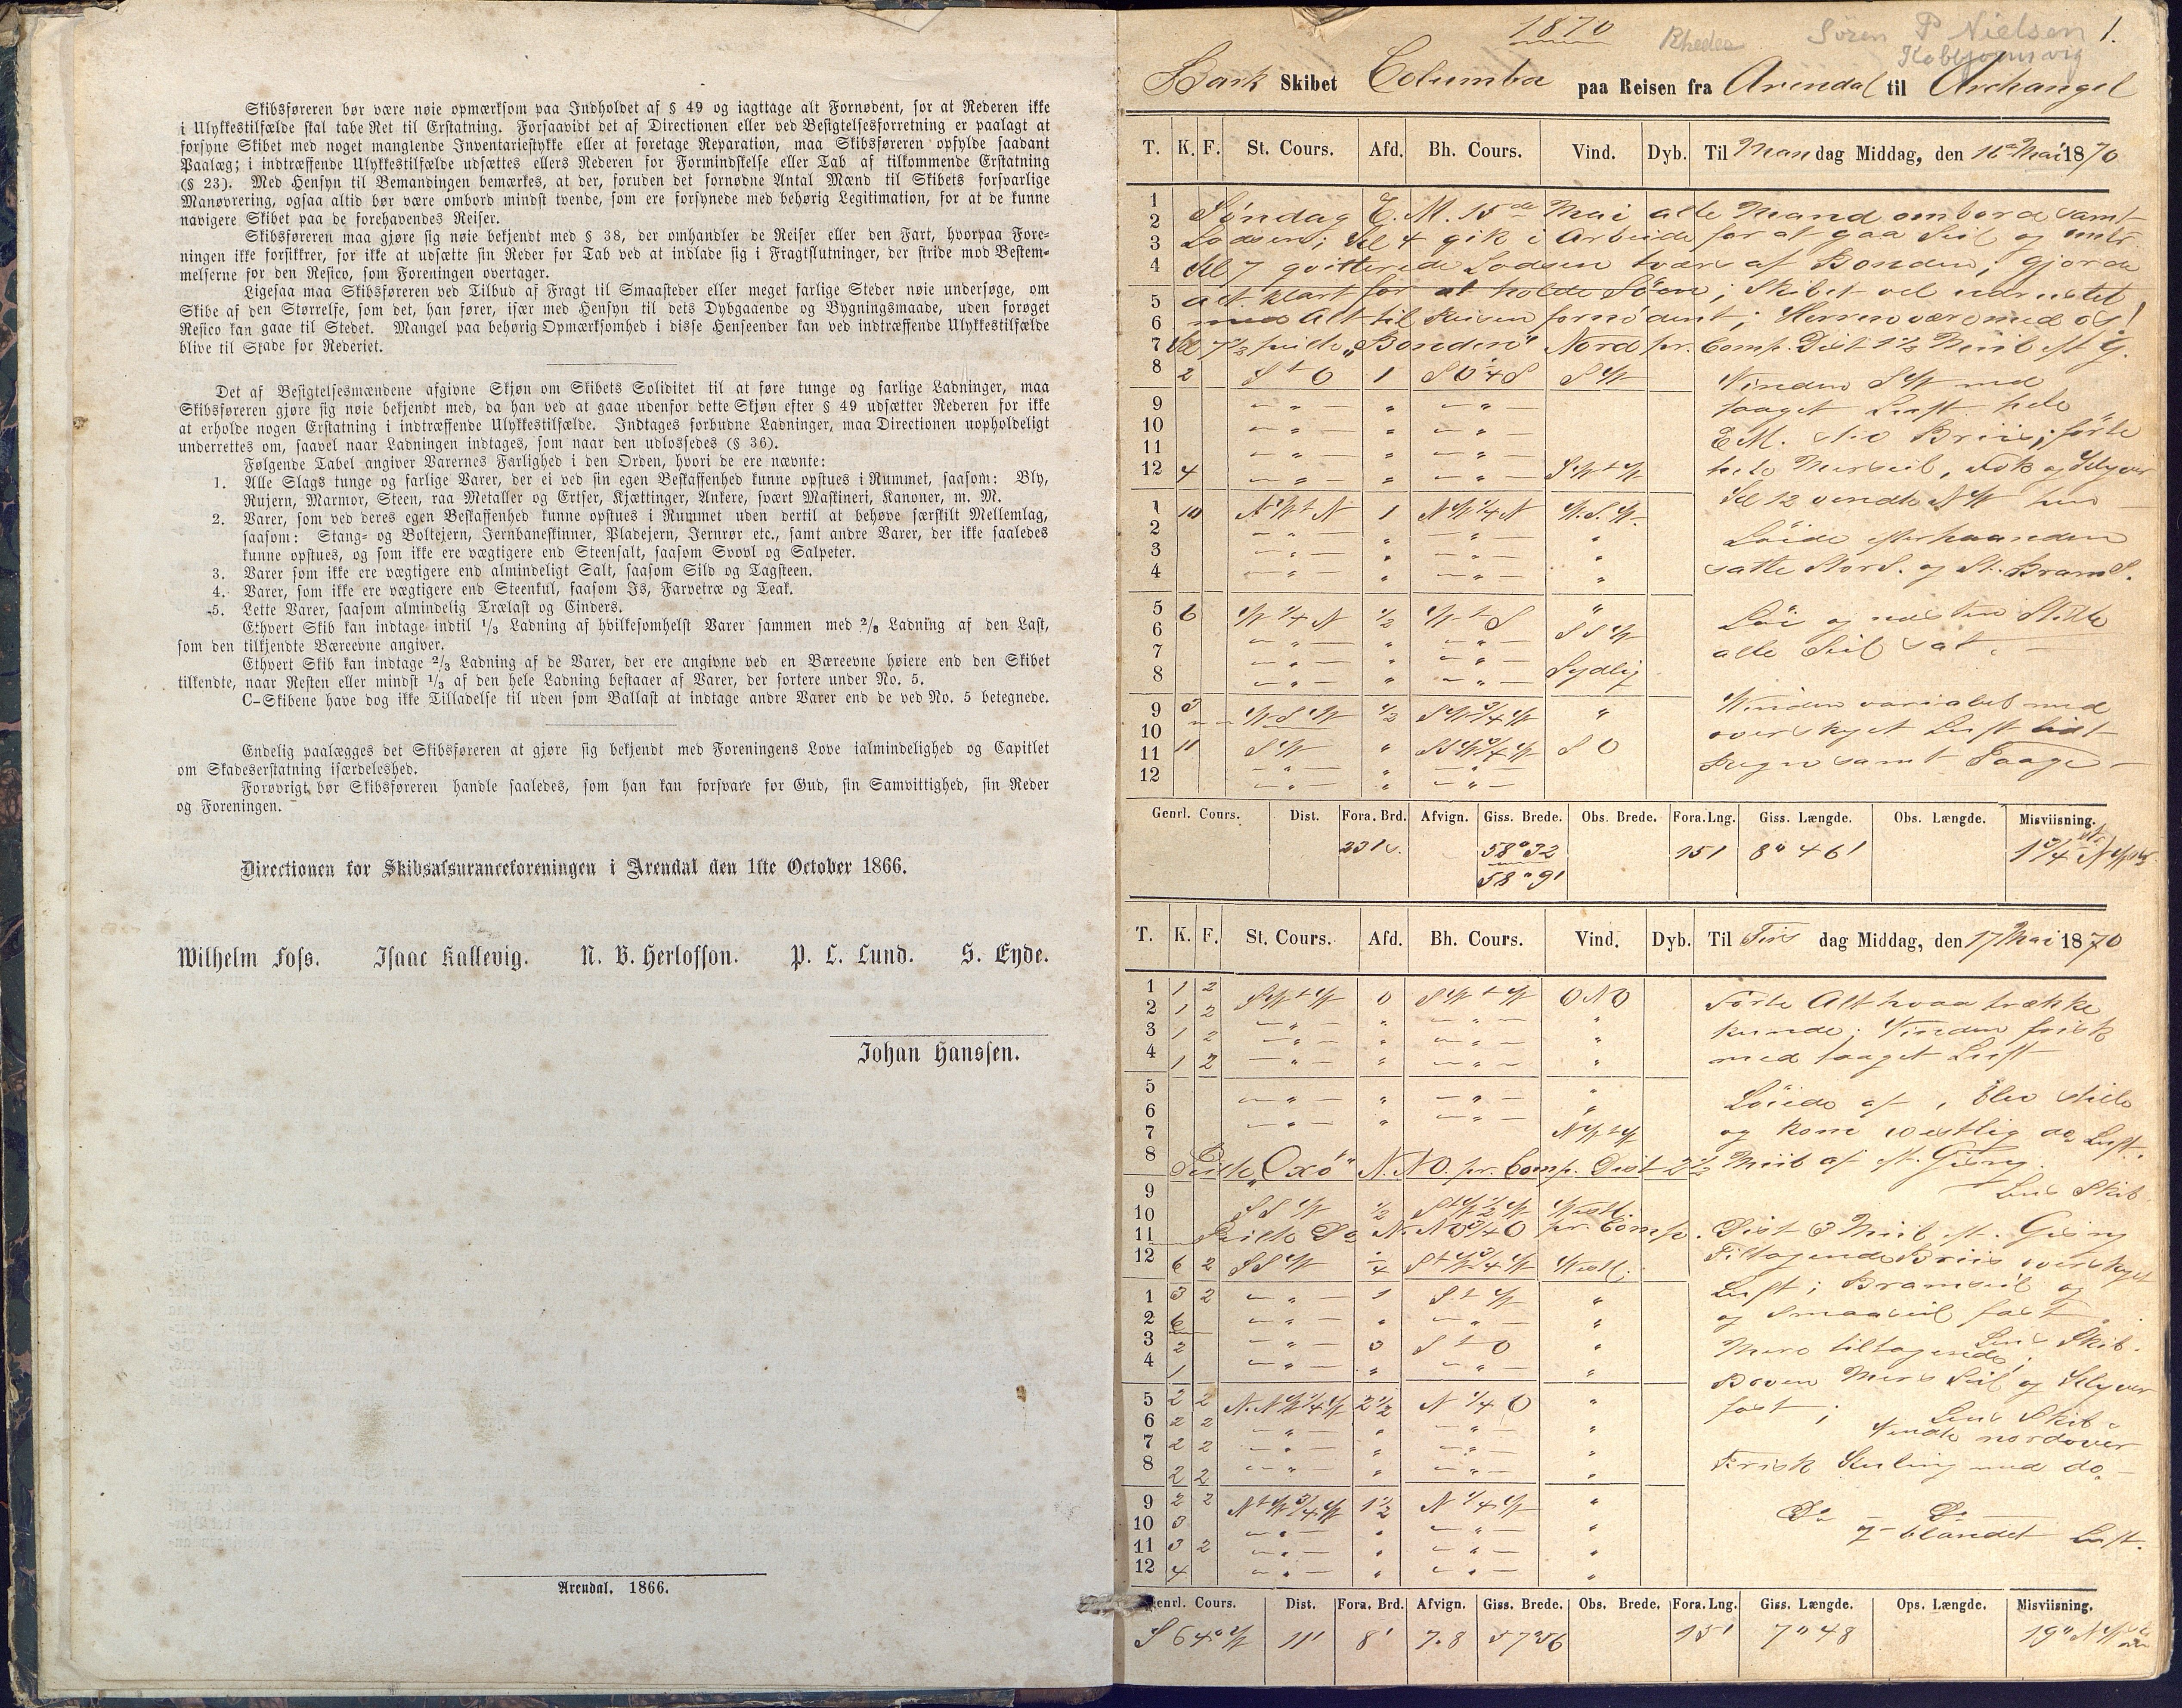 Skibsføreren bør være nøie opmærksom paa Indholdet af § 49 og iagttage alt Fornødent, for at Rederen ikke
i Ulykkestilfælde skal tabe Ret til Erstatning. Forsaavidt det af Directionen eller ved Besigtelsesforretning er paalagt at
forsyne Skibet med noget manglende Inventariestykke eller at foretage Reparation, maa Skibsføreren opfylde saadant
Paalæg; i indtræffende Ulykkestilfælde udsættes ellers Rederen for Formindskelse eller Tab af tilkommende Erstatning
(§ 23). Med Hensyn til Bemandingen bemærkes, at der, foruden det fornødne Antal Mænd til Skibets forsvarlige
Manøvrering, ogsaa altid bør være ombord mindst tvende, som ere forsynede med behørig Legitimation, for at de kunne
navigere Skibet paa de forehavendes Reiser.
Skibsføreren maa gjøre sig nøie bekjendt med § 38, der omhandler de Reiser eller den Fart, hvorpaa Fore-
ningen ikke forsikkrer, for ikke at udsætte sin Reder for Tab ved at indlade sig i Fragtslutninger, der stride mod Bestem-
melserne for den Resico, som Foreningen overtager.
Ligesaa maa Skibsføreren ved Tilbud af Fragt til Smaasteder eller meget farlige Steder nøie undersøge, om
Skibe af den Størrelse, som det, han fører, især med Hensyn til dets Dybgaaende og Bygningsmaade, uden forøget
Resico kan gaae til Stedet. Mangel paa behørig Opmærksomhed i disse Henseender kan ved indtræffende Ulykkestilfælde
blive til Skade for Rederiet.
Det af Besigtelsesmændene afgivne Skjøn om Skibets Soliditet til at føre tunge og farlige Ladninger, maa
Skibsføreren gjøre sig nøie bekjendt med, da han ved at gaae udenfor dette Skjøn efter § 49 udsætter Rederen for ikke
at erholde nogen Erstatning i indtræffende Ulykkestilfælde. Indtages forbudne Ladninger, maa Directionen uopholdeligt
underrettes om, saavel naar Ladningen indtages, som naar den udlossedes (§ 36).
Følgende Tabel angiver Varernes Farlighed i den Orden, hvori de ere nævnte:
1. Alle Slags tunge og farlige Varer, der ei ved sin egen Beskaffenhed kunne opstues i Rummet, saasom: Bly,
Rujern, Marmor, Steen, raa Metaller og Ertser, Kjættinger, Ankere, svært Maskineri, Kanoner, m. M.
2. Varer, som ved deres egen Beskaffenhed kunne opstues i Rummet uden dertil at behøve særskilt Mellemlag,
saasom: Stang- og Boltejern, Jernbaneskinner, Pladejern, Jernrør etc., samt andre Varer, der ikke saaledes
kunne opstues, og som ikke ere vægtigere end Steensalt, saasom Svovl og Salpeter.
3. Varer som ikke ere vægtigere end almindeligt Salt, saasom Sild og Tagsteen.
4. Varer, som ikke ere vægtigere end Steenkul, saasom Is, Farvetræ og Teak.
5. Lette Varer, saasom almindelig Trælast og Cinders.
Ethvert Skib kan indtage indtil 1/3 Ladning af hvilkesomhelst Varer sammen med 2/3 Ladning af den Last,
som den tilkjendte Bæreevne angiver.
Ethvert Skib kan indtage 2/3 Ladning af de Varer, der ere angivne ved en Bæreevne høiere end den Skibet
tilkendte, naar Resten eller mindst 1/3 af den hele Ladning bestaaer af Varer, der sortere under No. 5.
C-Skibene have dog ikke Tilladelse til uden som Ballast at indtage andre Varer end de ved No. 5 betegnede.
Endelig paalægges det Skibsføreren at gjøre sig bekjendt med Foreningens Love ialmindelighed og Capitlet
om Skadeserstatning isærdeleshed.
Forøvrigt bør Skibsføreren handle saaledes, som han kan forsvare for Gud, sin Samvittighed, sin Reder
og Foreningen.
Directionen for Skibsassuranceforeningen i Arendal den 1ste October 1866.
Wilhelm Foss. Isaac Kallevig. N. B. Herlofson. P. L. Lund. S. Eyde.
Johan Hanssen.
Arendal. 1866.
1870 Rheder Søren P Nielsen 1.
Bark Skibet Columba paa Reisen fra Arendal til Archangel
T. K. F. St. Cours. Afd. Bh. Cours. Vind. Dyb. Til Mandag Middag, den 16de Mai 1870
1 Søndag E. M. 15de Mai alle Mand ombord samt
2 Lodsen; Kl 4 gik i Arbeide for at gaa Seil og
3 Kl 7 qvitterede Lodsen tværs af Bonden; gjorde
4 alt klart for at holde Søen; Skibet vel udrustet
5 med Alt til Reisen fornødent; Herren være med os!
6
7 Kl 7½ peilte „Bonden" Nord pr. Comp. Dist 1½ Miil eft G.
8 2 S t O 1 SO ¼ S SW Vinden SW med
9 taaget Luft hele
10 E M. Briis; førte
11
12 4 SW t W hele Merseil, Fok og Klyver
Kl 12 vendte NW hen
1 10 NW t N 1 NW ¼ N W.S.W.
2 Løide efterhaanden
3 satte StorS. og St. BramS.
4
5 6 W ¼ N ½ W t S " Løi og næsten Stille
6 SSW
7 alle Seil sat.
8 Sydlig
9 3 WSW ½ SW ¾ W " Vinden variabel med
10 overskyet Luft lidt
11 11 SW " SW ¾ W SO
12 Regn samt Taage
Genrl. Cours. Dist. Fora. Brd. Afvign. Giss. Brede. Obs. Brede. Fora.Lng. Giss. Længde. Obs. Længde. Misviisning.
23' S. 58°32 151 8° 46' 1¾
58° 9'
T. K. F. St. Cours. Afd. Bh. Cours. Vind. Dyb. Til Tirsdag Middag, den 17 Mai 1870
1 1 2 SW t W 0 SW t W ONO Førte Alt hvad trække
2 1 2 kunde; Vinden frisk
3 1 2
4 1 2 med taaget Luft
5 Løiede af, blev stille
6
7 NW t W og kom vestlig do Luft.
8 Peilte „Oxö" N.NO. pr. Comp. Dist 2½ Miil af eft. Gisng.
9 Lens Skib
10 SSW ½ S t W ½ W Vestl.
11 Peilte Do N.NO ¾ O pr. Comp. Dist 3 Miil eft. Gisng
12 6 2 SSW ¼ S t W ¾ W Vestl. Tiltagende Briis overskyet
1 3 2 1 S. t W " Luft; Bramseil og
2 6 og smaaseil fast
3 2 3 S t O " Lens Skib.
Mere tiltagende;
4 1 Boven Mers Seil og Klyver
5 2 2 N.NW ¼ W 2½ N ¼ O " fast; Lens Skib
6 2 2 Vendte nordover
7 2 2
8 2 2 Frisk Kuling med do
9 2 2 N t W ¾ W 1½ N ¼ W "
10 3 Do Do
11 3 2 og blandet Luft.
12 4
Genrl. Cours. Dist. Fora. Brd. Afvign. Giss. Brede. Obs. Brede. Fora.Lng. Giss. Længde. Ops. Længde. Misviisning.
S 64° W 11' 8' 7.8 57°56 15' 7° 48 19°